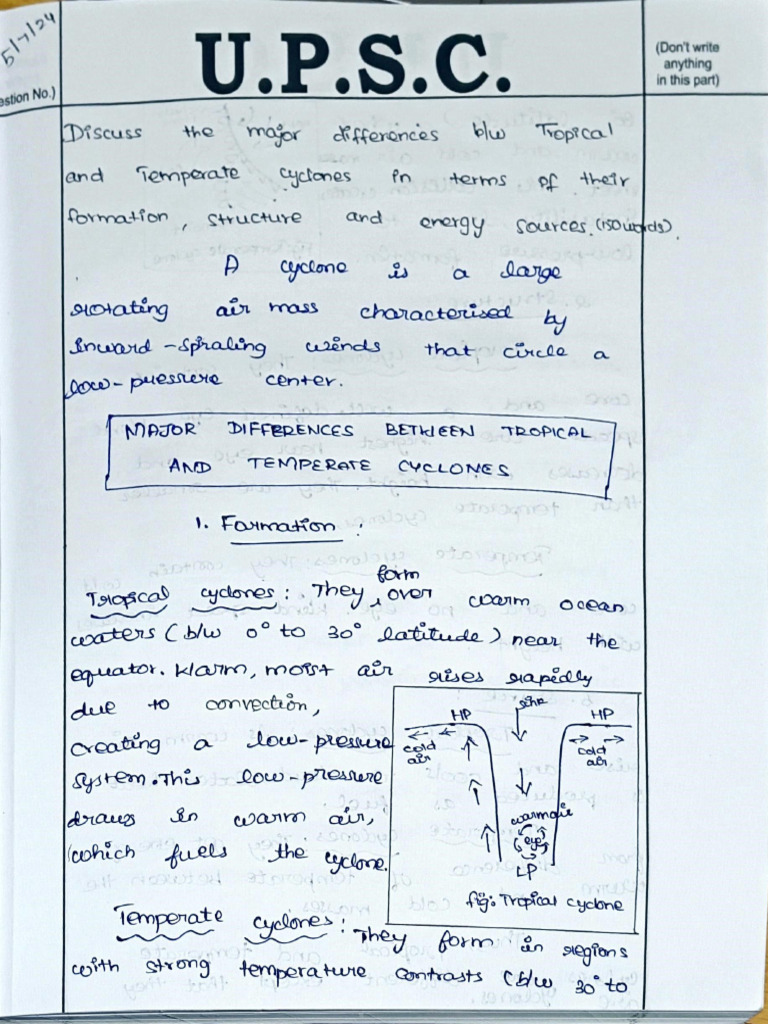 5/7/24
U.P.S.C.
(Don't write
anything
in this part)
estion No.)
Discuss the major differences b/w Tropical
and Temperate cyclones in terms of their
formation, structure and energy sources. (150 words).
A cyclone is a large
rotating air mass characterised by
inward-spiraling winds that circle a
low-pressure center.
MAJOR DIFFERENCES BETWEEN TROPICAL
AND TEMPERATE CYCLONES
1. Formation :
Tropical cyclones : They form over warm ocean
waters (b/w 0° to 30° latitude) near the
equator. Warm, moist air rises rapidly
due to convection,
creating a low-pressure
system. This low-pressure
draws in warm air,
which fuels the cyclone.
HP
HP
cold
air
cold
air
warm air
eye
LP
fig: Tropical cyclone
Temperate cyclones : They form in regions
with strong temperature contrasts (b/w 30° to